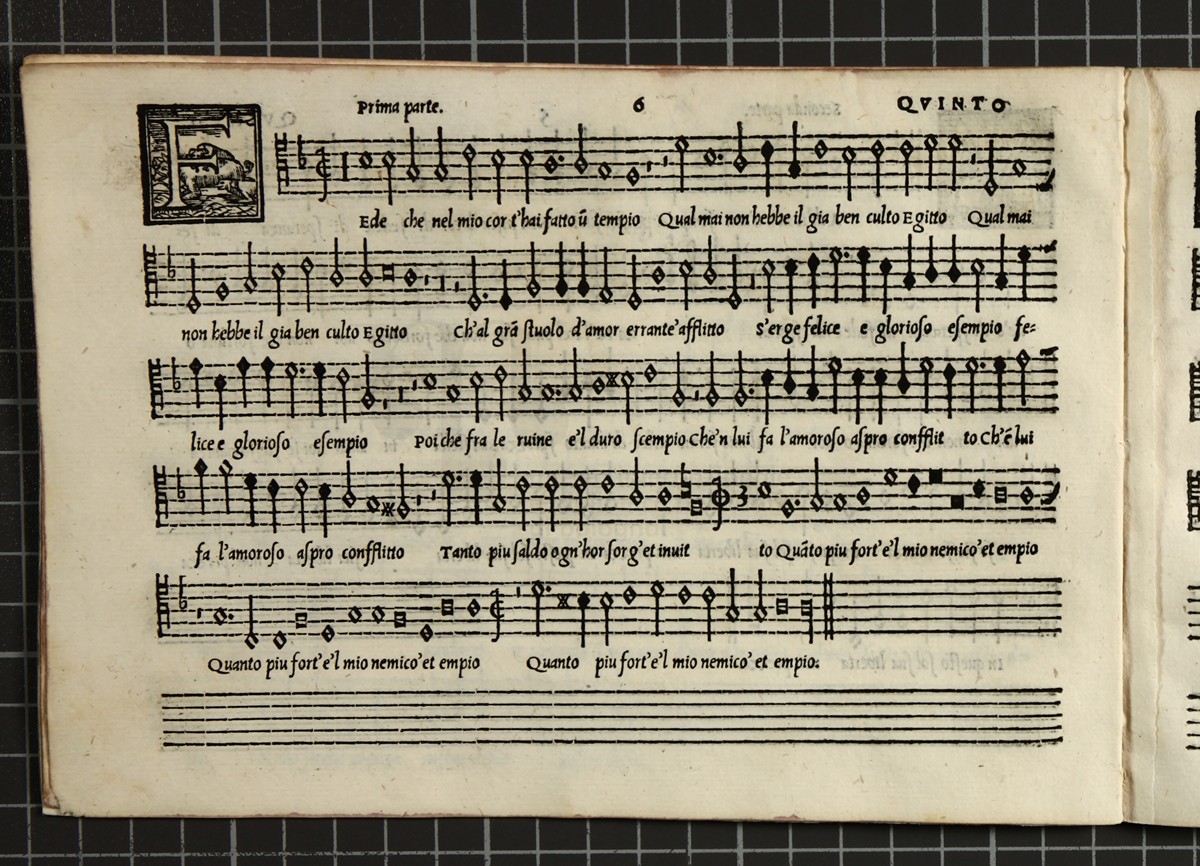 Prima parte. 6 QVINTO
F
Ede che nel mio cor t'hai fatto ũ tempio Qual mai non hebbe il gia ben culto Egitto Qual mai
non hebbe il gia ben culto Egitto Ch'al grã stuolo d'amor errante'afflitto S'erge felice e glorioso esempio fe=
lice e glorioso esempio Poi che fra le ruine e'l duro scempio Che'n lui fa l'amoroso aspro confflit to Ch'ẽ lui
fa l'amoroso aspro confflitto Tanto piu saldo ogn'hor sorg'et inuit to Quãto piu fort'e'l mio nemico'et empio
3
Quanto piu fort'e'l mio nemico'et empio Quanto piu fort'e'l mio nemico'et empio.